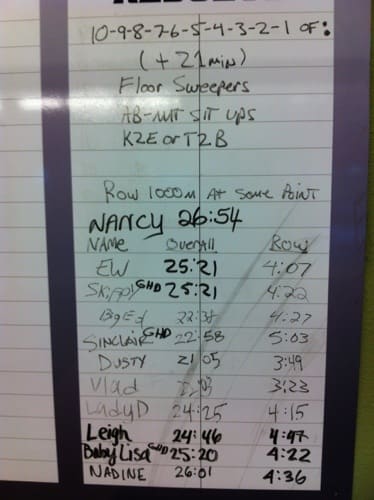 10-9-8-7-6-5-4-3-2-1 OF:
(+21min)
Floor Sweepers
AB-MAT SIT UPS
K2E or T2B
Row 1000m At Some Point
NANCY 26:54
NAME Overall Row
EW 25:21 4:07
Skippy GHD 25:21 4:22
Big Ed 22:38 4:27
SINCLAIR GHD 22:58 5:03
DUSTY 21:05 3:49
Vlad 3:23
LadyD 24:25 4:15
Leigh 24:46 4:47
Baby Lisa GHD 25:20 4:22
NADINE 26:01 4:36